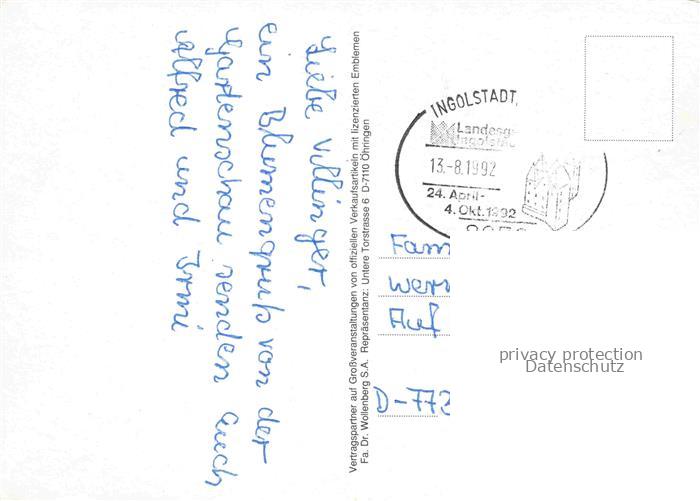 Liebe Villinger,
ein Blumengruß von der
Gartenschau senden Euch
Alfred und Irmi
Vertragspartner auf Großveranstaltungen von offiziellen Verkaufsartikeln mit lizenzierten Emblemen
Fa. Dr. Wollenberg S.A. Repräsentanz: Untere Torstrasse 6 D-7110 Öhringen
INGOLSTADT,
Landesg
Ingolst
13.-8.1992
24. April-
4. Okt. 1992
Fam
Wern
Auf
D-772
privacy protection
Datenschutz